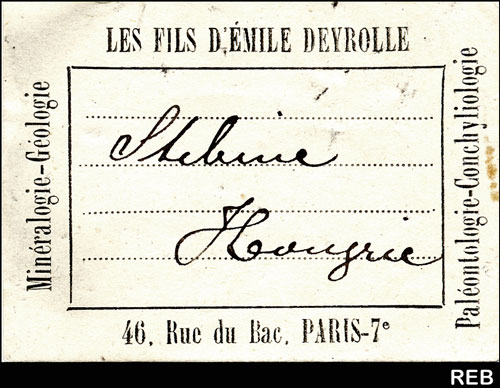 LES FILS D'ÉMILE DEYROLLE
Minéralogie-Géologie
Stibine
Hongrie
Paléontologie-Conchyliologie
46, Rue du Bac, PARIS-7e
REB